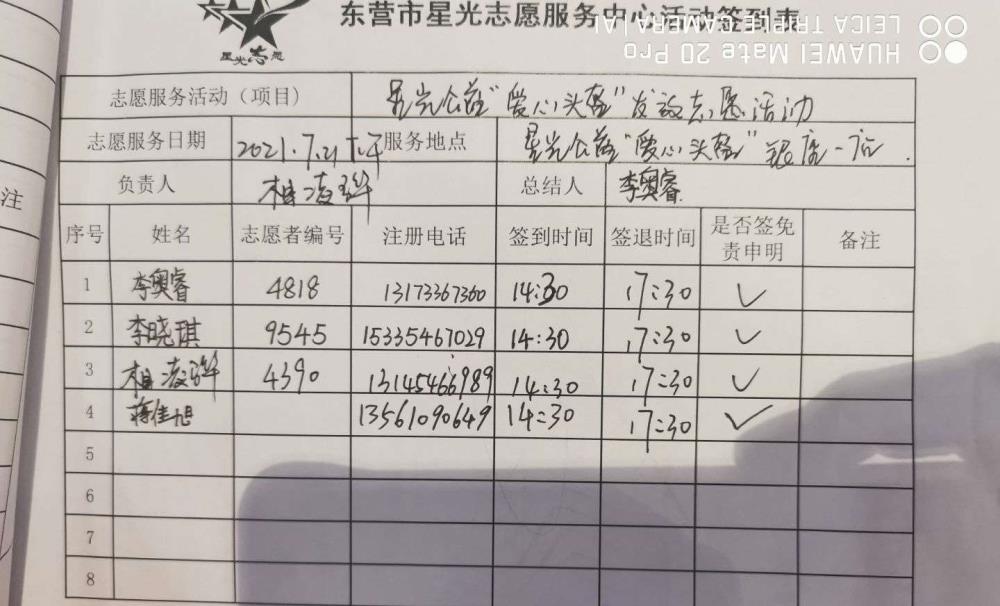 东营市星光志愿服务中心活动签到表
星光志愿
HUAWEI Mate 20 Pro
LEICA TRIPLE CAMERA | AI
注
志愿服务活动（项目） 星光公益“爱心头盔”发放志愿活动
志愿服务日期 2021.7.21 下午 服务地点 星光公益“爱心头盔”银座一店
负责人 相凌 总结人 李奥睿
序号 姓名 志愿者编号 注册电话 签到时间 签退时间 是否签免责申明 备注
1 李奥睿 4818 13173367360 14:30 17:30 ✓
2 李晓琪 9545 15335467029 14:30 17:30 ✓
3 相凌 4390 13145466989 14:30 17:30 ✓
4 蒋佳旭 13561090649 14:30 17:30 ✓
5
6
7
8